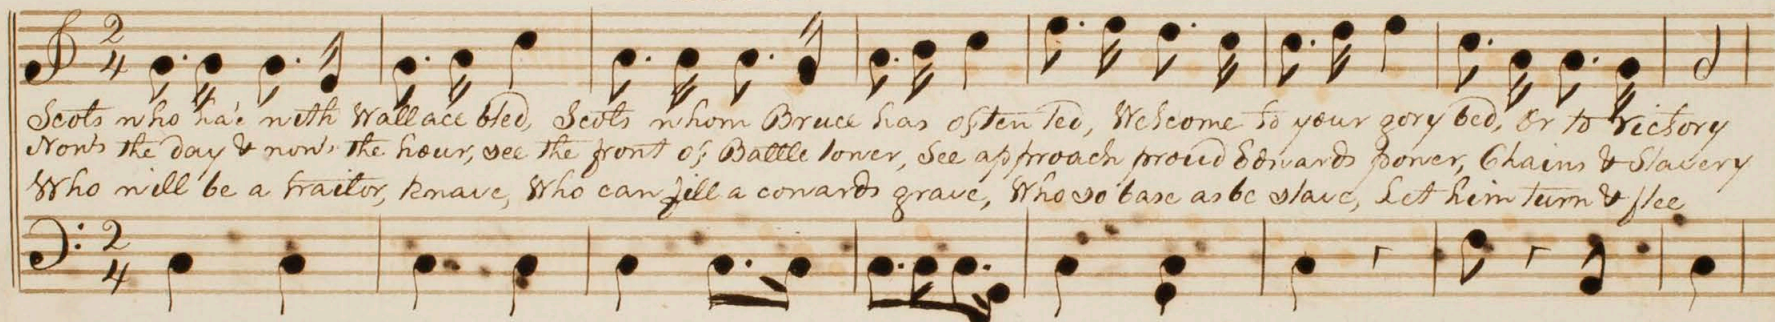 2
4
Scots who ha'e with Wallace bled, Scots whom Bruce has often led, Welcome to your gory bed, Or to Victory
Now's the day & now's the hour, see the front of Battle lower, See approach proud Edwards power, Chains & Slavery
Who will be a traitor, knave, Who can fill a cowards grave, Who so base as be slave, Let him turn & flee
2
4